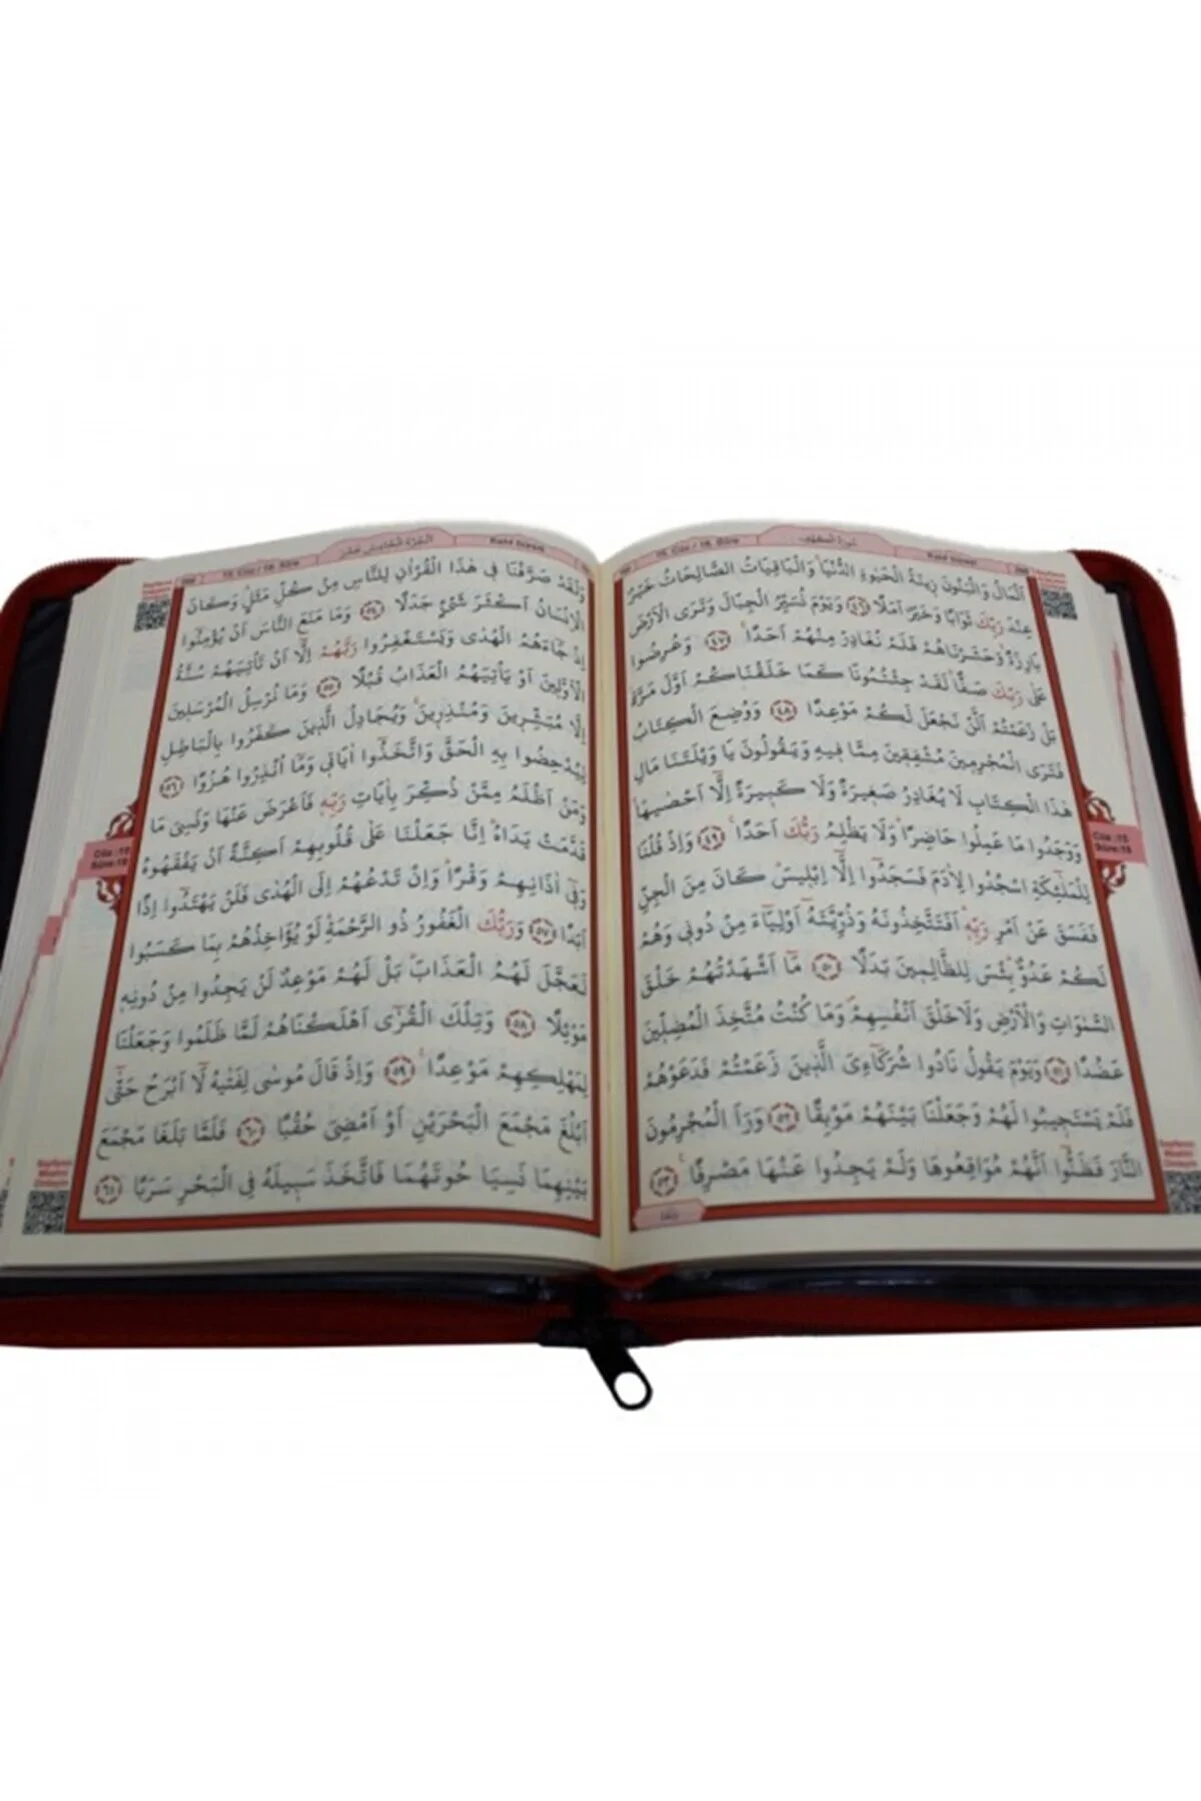 سُورَةُ الْكَهْفِ
15. Cüz / 18. Sûre
اَلْمَالُ وَالْبَنُونَ زِينَةُ الْحَيٰوةِ الدُّنْيَاۚ وَالْبَاقِيَاتُ الصَّالِحَاتُ خَيْرٌ
عِنْدَ رَبِّكَ ثَوَابًا وَخَيْرٌ اَمَلًا ﴿٤٦﴾ وَيَوْمَ نُسَيِّرُ الْجِبَالَ وَتَرَى الْاَرْضَ
بَارِزَةًۙ وَحَشَرْنَاهُمْ فَلَمْ نُغَادِرْ مِنْهُمْ اَحَدًاۚ ﴿٤٧﴾ وَعُرِضُوا
عَلٰى رَبِّكَ صَفًّاۜ لَقَدْ جِئْتُمُونَا كَمَا خَلَقْنَاكُمْ اَوَّلَ مَرَّةٍۘ
بَلْ زَعَمْتُمْ اَلَّنْ نَجْعَلَ لَكُمْ مَوْعِدًا ﴿٤٨﴾ وَوُضِعَ الْكِتَابُ
فَتَرَى الْمُجْرِمِينَ مُشْفِقِينَ مِمَّا فِيهِ وَيَقُولُونَ يَا وَيْلَتَنَا مَالِ
هٰذَا الْكِتَابِ لَا يُغَادِرُ صَغِيرَةً وَلَا كَبِيرَةً اِلَّٓا اَحْصٰيهَاۚ
وَوَجَدُوا مَا عَمِلُوا حَاضِرًاۜ وَلَا يَظْلِمُ رَبُّكَ اَحَدًا۟ ﴿٤٩﴾ وَاِذْ قُلْنَا
لِلْمَلٰٓئِكَةِ اسْجُدُوا لِاٰدَمَ فَسَجَدُٓوا اِلَّٓا اِبْلِيسَۜ كَانَ مِنَ الْجِنِّ
فَفَسَقَ عَنْ اَمْرِ رَبِّهٖۜ اَفَتَتَّخِذُونَهُ وَذُرِّيَّتَهُٓ اَوْلِيَٓاءَ مِنْ دُونٖي وَهُمْ
لَكُمْ عَدُوٌّۜ بِئْسَ لِلظَّالِمِينَ بَدَلًا ﴿٥٠﴾ مَٓا اَشْهَدْتُهُمْ خَلْقَ
السَّمٰوَاتِ وَالْاَرْضِ وَلَا خَلْقَ اَنْفُسِهِمْۖ وَمَا كُنْتُ مُتَّخِذَ الْمُضِلِّينَ
عَضُدًا ﴿٥١﴾ وَيَوْمَ يَقُولُ نَادُوا شُرَكَٓاءِيَ الَّذِينَ زَعَمْتُمْ فَدَعَوْهُمْ
فَلَمْ يَسْتَجِيبُوا لَهُمْ وَجَعَلْنَا بَيْنَهُمْ مَوْبِقًا ﴿٥٢﴾ وَرَاَ الْمُجْرِمُونَ
النَّارَ فَظَنُّٓوا اَنَّهُمْ مُوَاقِعُوهَا وَلَمْ يَجِدُوا عَنْهَا مَصْرِفًا۟ ﴿٥٣﴾
Cüz :15
Sûre:18
اَلْجُزْءُ الْخَامِسَ عَشَرَ
15. Cüz / 18. Sûre
وَلَقَدْ صَرَّفْنَا فِي هٰذَا الْقُرْاٰنِ لِلنَّاسِ مِنْ كُلِّ مَثَلٍۜ وَكَانَ
الْاِنْسَانُ اَكْثَرَ شَيْءٍ جَدَلًا ﴿٥٤﴾ وَمَا مَنَعَ النَّاسَ اَنْ يُؤْمِنُٓوا
اِذْ جَٓاءَهُمُ الْهُدٰى وَيَسْتَغْفِرُوا رَبَّهُمْ اِلَّٓا اَنْ تَأْتِيَهُمْ سُنَّةُ
الْاَوَّلِينَ اَوْ يَأْتِيَهُمُ الْعَذَابُ قُبُلًا ﴿٥٥﴾ وَمَا نُرْسِلُ الْمُرْسَلِينَ
اِلَّا مُبَشِّرِينَ وَمُنْذِرِينَۚ وَيُجَادِلُ الَّذِينَ كَفَرُوا بِالْبَاطِلِ
لِيُدْحِضُوا بِهِ الْحَقَّ وَاتَّخَذُٓوا اٰيَاتٖي وَمَٓا اُنْذِرُوا هُزُوًا ﴿٥٦﴾
وَمَنْ اَظْلَمُ مِمَّنْ ذُكِّرَ بِاٰيَاتِ رَبِّهٖ فَاَعْرَضَ عَنْهَا وَنَسِيَ مَا
قَدَّمَتْ يَدَاهُۜ اِنَّا جَعَلْنَا عَلٰى قُلُوبِهِمْ اَكِنَّةً اَنْ يَفْقَهُوهُ
وَفٖٓي اٰذَانِهِمْ وَقْرًاۜ وَاِنْ تَدْعُهُمْ اِلَى الْهُدٰى فَلَنْ يَهْتَدُٓوا اِذًا
اَبَدًا ﴿٥٧﴾ وَرَبُّكَ الْغَفُورُ ذُو الرَّحْمَةِۜ لَوْ يُؤَاخِذُهُمْ بِمَا كَسَبُوا
لَعَجَّلَ لَهُمُ الْعَذَابَۜ بَلْ لَهُمْ مَوْعِدٌ لَنْ يَجِدُوا مِنْ دُونِهٖ
مَوْئِلًا ﴿٥٨﴾ وَتِلْكَ الْقُرٰٓى اَهْلَكْنَاهُمْ لَمَّا ظَلَمُوا وَجَعَلْنَا
لِمَهْلِكِهِمْ مَوْعِدًا۟ ﴿٥٩﴾ وَاِذْ قَالَ مُوسٰى لِفَتٰيهُ لَٓا اَبْرَحُ حَتّٰٓى
اَبْلُغَ مَجْمَعَ الْبَحْرَيْنِ اَوْ اَمْضِيَ حُقُبًا ﴿٦٠﴾ فَلَمَّا بَلَغَا مَجْمَعَ
بَيْنِهِمَا نَسِيَا حُوتَهُمَا فَاتَّخَذَ سَبِيلَهُ فِي الْبَحْرِ سَرَبًا ﴿٦١﴾
Cüz :15
Sûre:18